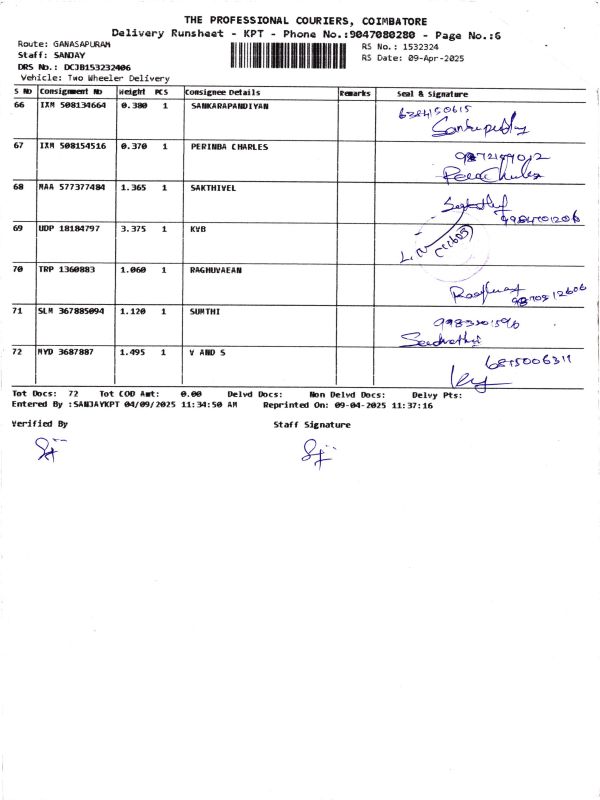 THE PROFESSIONAL COURIERS, COIMBATORE
Delivery Runsheet - KPT - Phone No.:9047080280 - Page No.:6
Route: GANASAPURAM
RS No.: 1532324
Staff: SANJAY
RS Date: 09-Apr-2025
DRS No.: DCJB153232406
Vehicle: Two Wheeler Delivery
S NO Consignment No Weight PCS Consignee Details Remarks Seal & Signature
66 IXM 508134664 0.380 1 SANKARAPANDIYAN
6384150615
67 IXM 508154516 0.370 1 PERINBA CHARLES
68 MAA 577377484 1.365 1 SAKTHIVEL
69 UDP 18184797 3.375 1 KVB
70 TRP 1360883 1.060 1 RAGHUVAEAN
71 SLM 367885094 1.120 1 SUMTHI
72 MYD 3687887 1.495 1 V AND S
Tot Docs: 72 Tot COD Amt: 0.00 Delvd Docs: Non Delvd Docs: Delvy Pts:
Entered By :SANJAYKPT 04/09/2025 11:34:50 AM Reprinted On: 09-04-2025 11:37:16
Verified By Staff Signature